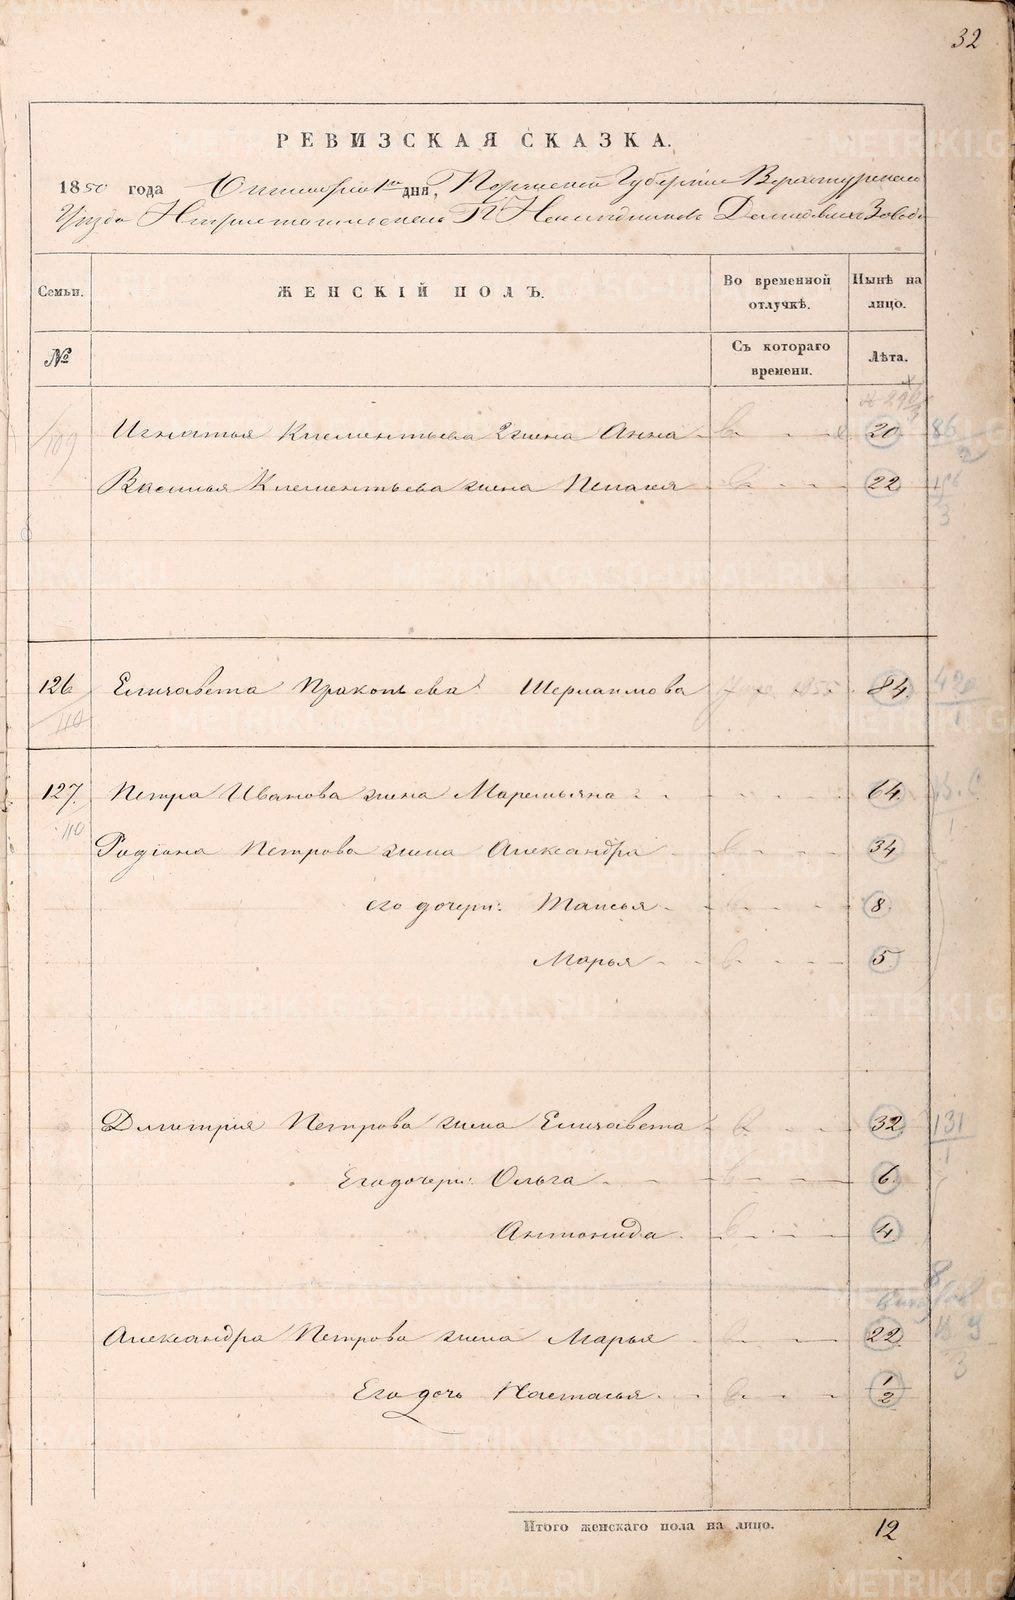 32
РЕВИЗСКАЯ СКАЗКА.
1850 года Октября 1го дня, Пермской Губернии Верхотурскаго
Уезда Нижнетагильскаго Гг Наследников Демидовых Завода
Семьи. ЖЕНСКІЙ ПОЛЪ. Во временной отлучкѣ. Нынѣ на лицо.
№ Съ котораго времени. Лѣта.
109 Игнатья Клементьева 2 жена Анна в 20 86/2
Василья Клементьева жена Пелагея в 22
126 Елизавета Пракопьева Шерлаимова 1855 84. 42
110
127. Петра Иванова жена Маремьяна 64.
110
Родіона Петрова жена Александра в 34
его дочери: Таисья 8.
Марья в 5
Дмитрія Петрова жена Елизавета в 32 131/1
Его дочери: Ольга в 6.
Антонида. в 4
Александра Петрова жена Марья в 22
Его дочь Настасья в 1/2
Итого женскаго пола на лицо. 12
METRIKI.GASO-URAL.RU